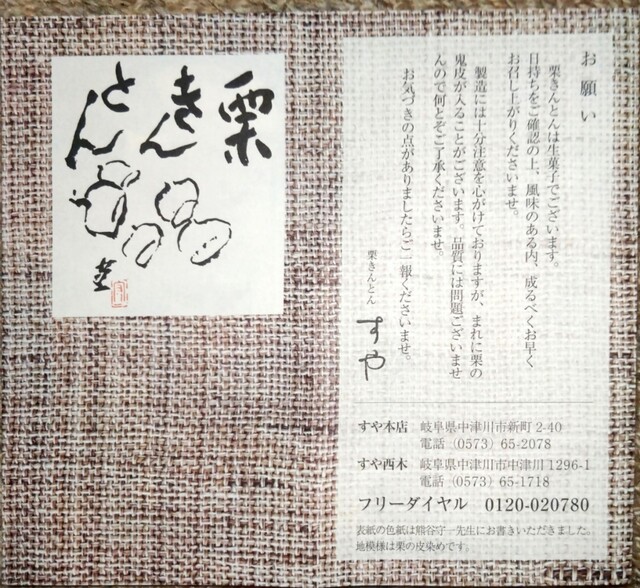 栗
きん
とん
お願い
栗きんとんは生菓子でございます。
日持ちをご確認の上、風味のある内、成るべくお早く
お召し上がりくださいませ。
製造には十分注意を心がけておりますが、まれに栗の
鬼皮が入ることがございます。品質には問題ございませ
んので何とぞご了承くださいませ。
お気づきの点がありましたらご一報くださいませ。
栗きんとん
すや
すや本店 岐阜県中津川市新町2-40
電話（0573）65-2078
すや西木 岐阜県中津川市中津川1296-1
電話（0573）65-1718
フリーダイヤル 0120-020780
表紙の色紙は熊谷守一先生にお書きいただきました。
地模様は栗の皮染めです。